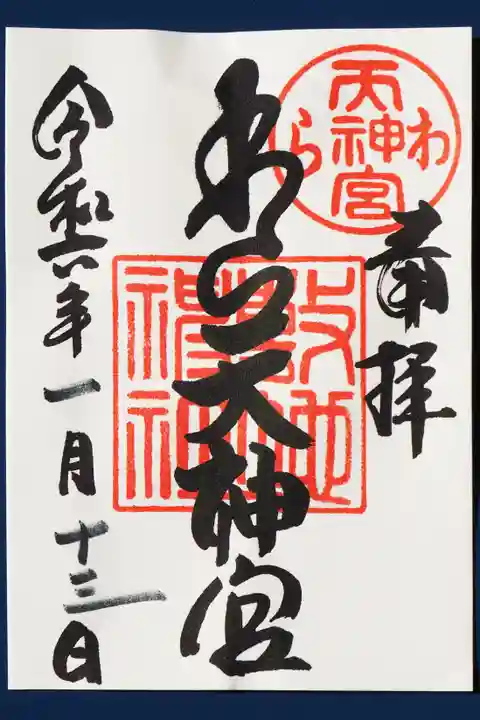 奉拝
わら天神宮
令和六年一月十三日
わら
天神宮
敷地
神社